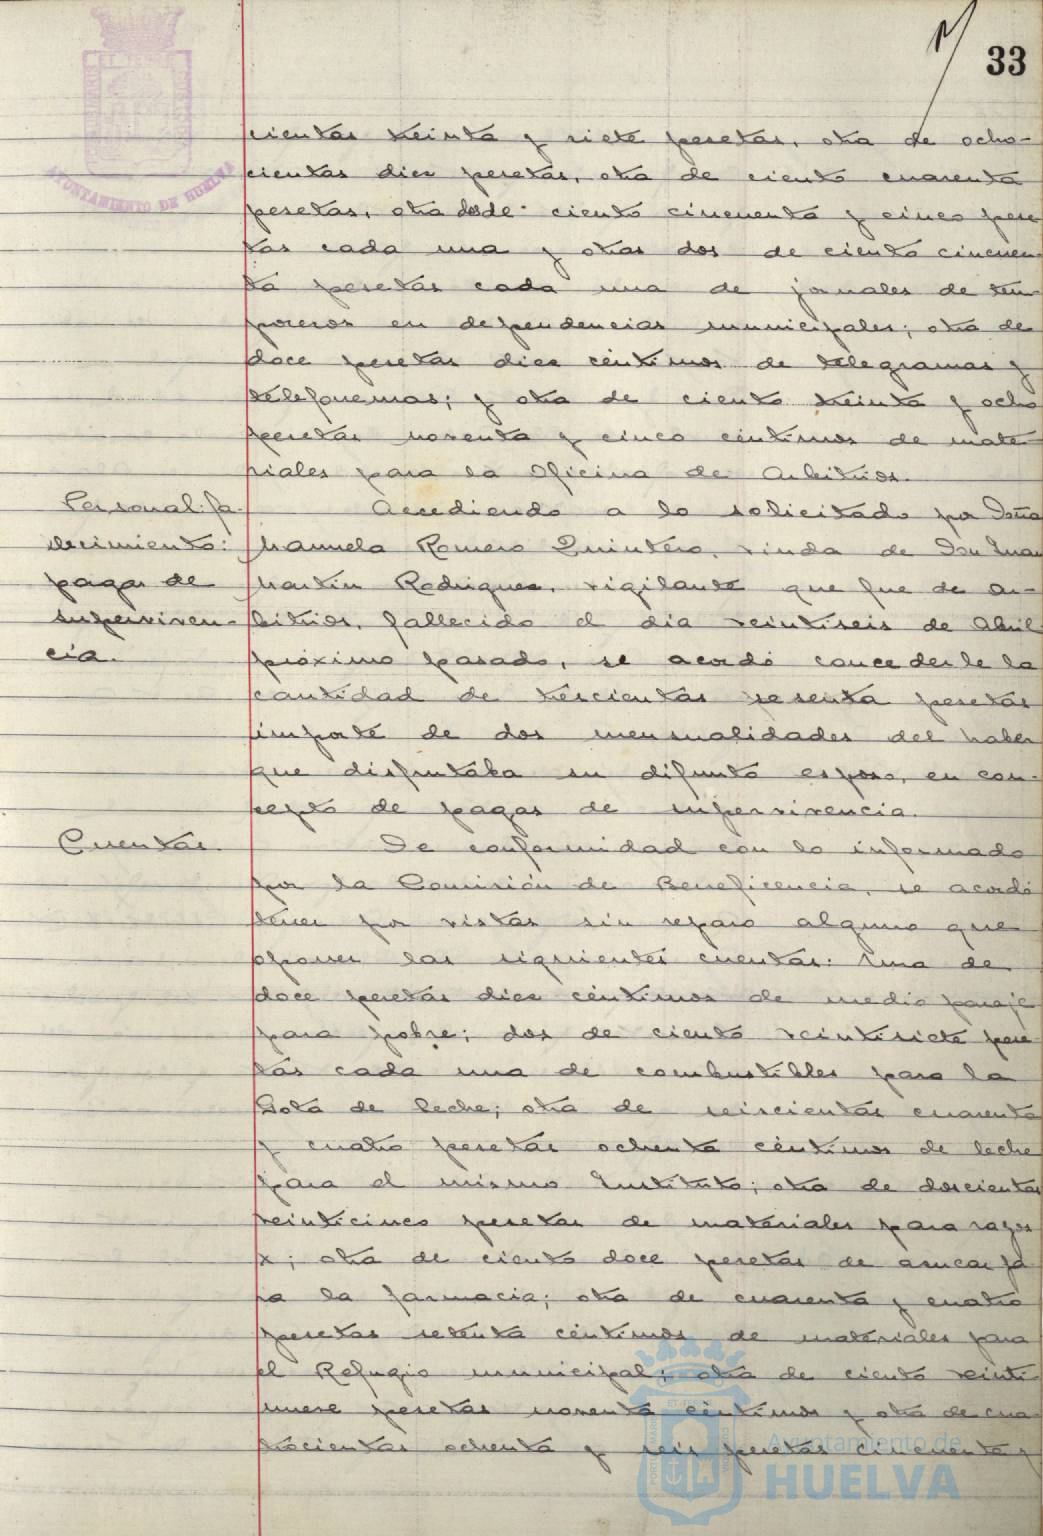 33
cientas treinta y siete pesetas, otra de ocho-
cientas diez pesetas, otra de ciento cuarenta
pesetas, otra de ciento cincuenta y cinco pese
tas cada una y otras dos de ciento cincuen-
ta pesetas cada una de jornales de tem-
poreros en dependencias municipales; otra de
doce pesetas diez céntimos de telegramas y
telefonemas; y otra de ciento treinta y ocho
pesetas noventa y cinco céntimos de mate
riales para la Oficina de Arbitrios.
Personal: fa-
llecimiento:
pagas de
superviven-
cia.
Accediendo a lo solicitado por Doña
Manuela Romero Quintero, viuda de Don Juan
Martín Rodriguez, vigilante que fue de Ar-
bitrios, fallecido el día veintiseis de Abril
próximo pasado, se acordó concederle la
cantidad de trescientas sesenta pesetas
importe de dos mensualidades del haber
que disfrutaba su difunto esposo, en con-
cepto de pagas de supervivencia.
Cuentas.
De conformidad con lo informado
por la Comisión de Beneficencia, se acordó
tener por vistas sin reparo alguno que
oponer las siguientes cuentas: Una de
doce pesetas diez céntimos de medio pasaje
para pobre; dos de ciento veintisiete pese
tas cada una de combustibles para la
Gota de leche; otra de seiscientas cuarenta
y cuatro pesetas ochenta céntimos de leche
para el mismo Instituto; otra de doscientas
veinticinco pesetas de materiales para rayos
x; otra de ciento doce pesetas de azucar pa
ra la farmacia; otra de cuarenta y cuatro
pesetas setenta céntimos de materiales para
el Refugio municipal; otra de ciento veinti
nueve pesetas noventa céntimos y otra de cua
trocientas ochenta y seis pesetas cincuenta y
AYUNTAMIENTO DE HUELVA
Ayuntamiento de
HUELVA